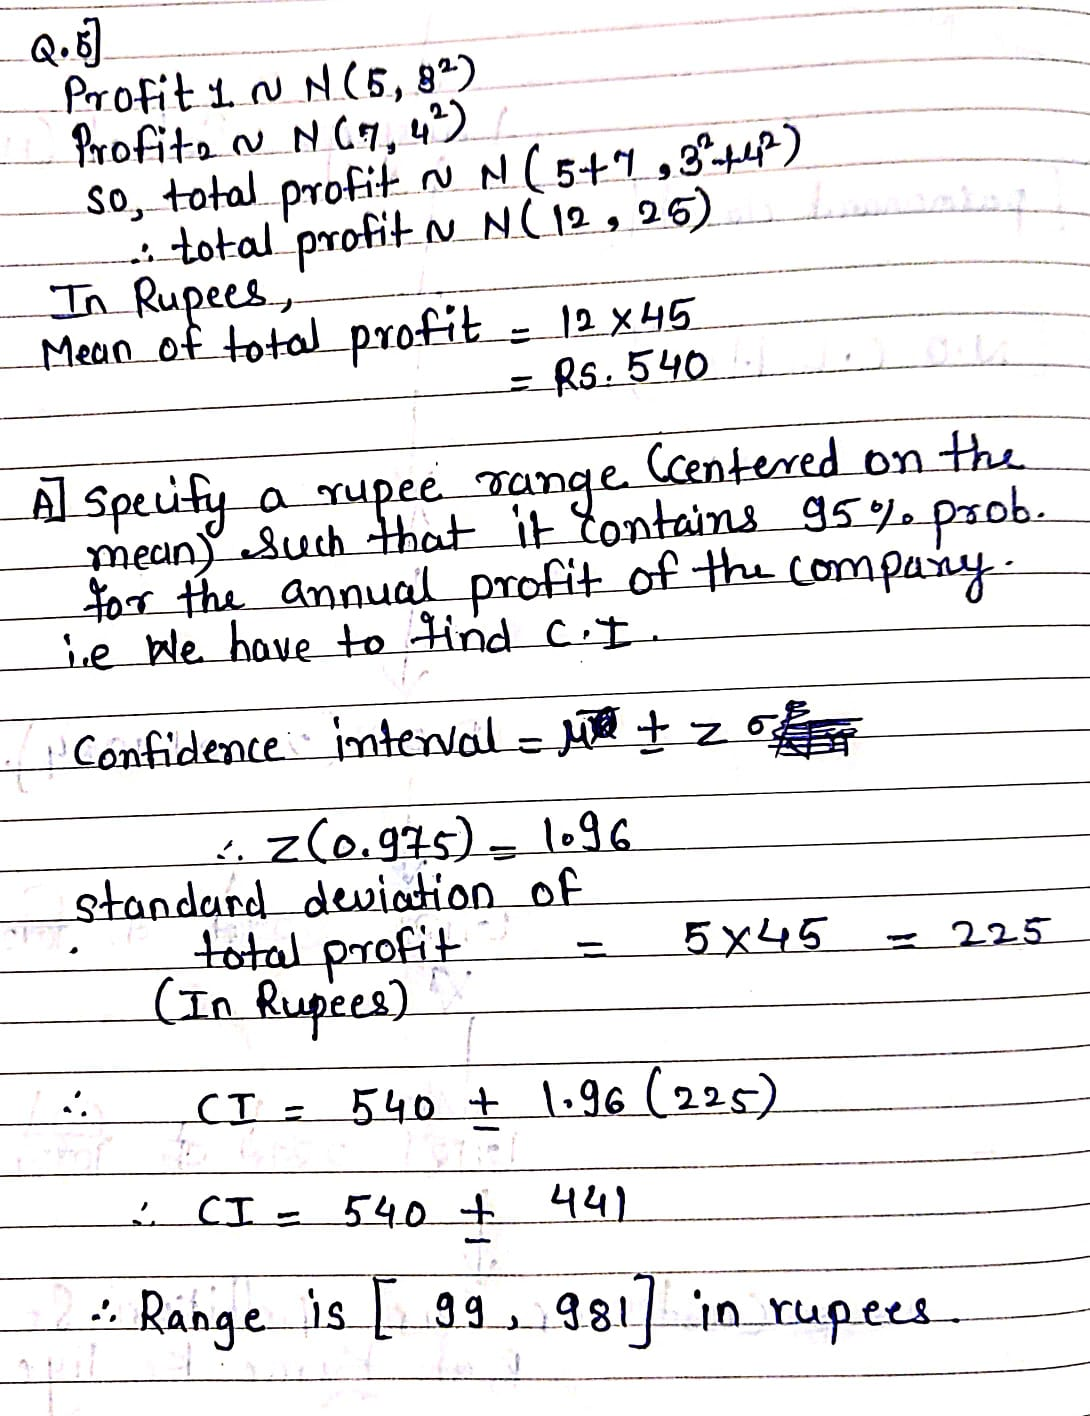 Q.5]
Profit 1 ~ N(5, 3²)
Profit2 ~ N(7, 4²)
so, total profit ~ N(5+7, 3²+4²)
∴ total profit ~ N(12, 25)
In Rupees,
Mean of total profit = 12 x 45
= RS. 540
A] Specify a rupee range (centered on the
mean) such that it contains 95% prob.
for the annual profit of the company.
i.e We have to find C.I.
Confidence interval = μ ± z σ
∴ z(0.975) = 1.96
standard deviation of
total profit = 5x45 = 225
(In Rupees)
∴ CI = 540 ± 1.96 (225)
∴ CI = 540 ± 441
∴ Range is [99, 981] in rupees.